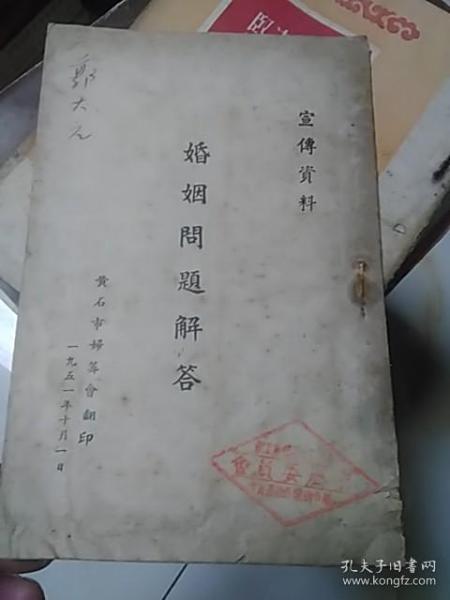 宣傳資料
婚姻問題解答
黄石市婦筹會翻印
一九五一年十月一日
孔夫子旧书网
www.kongfz.com